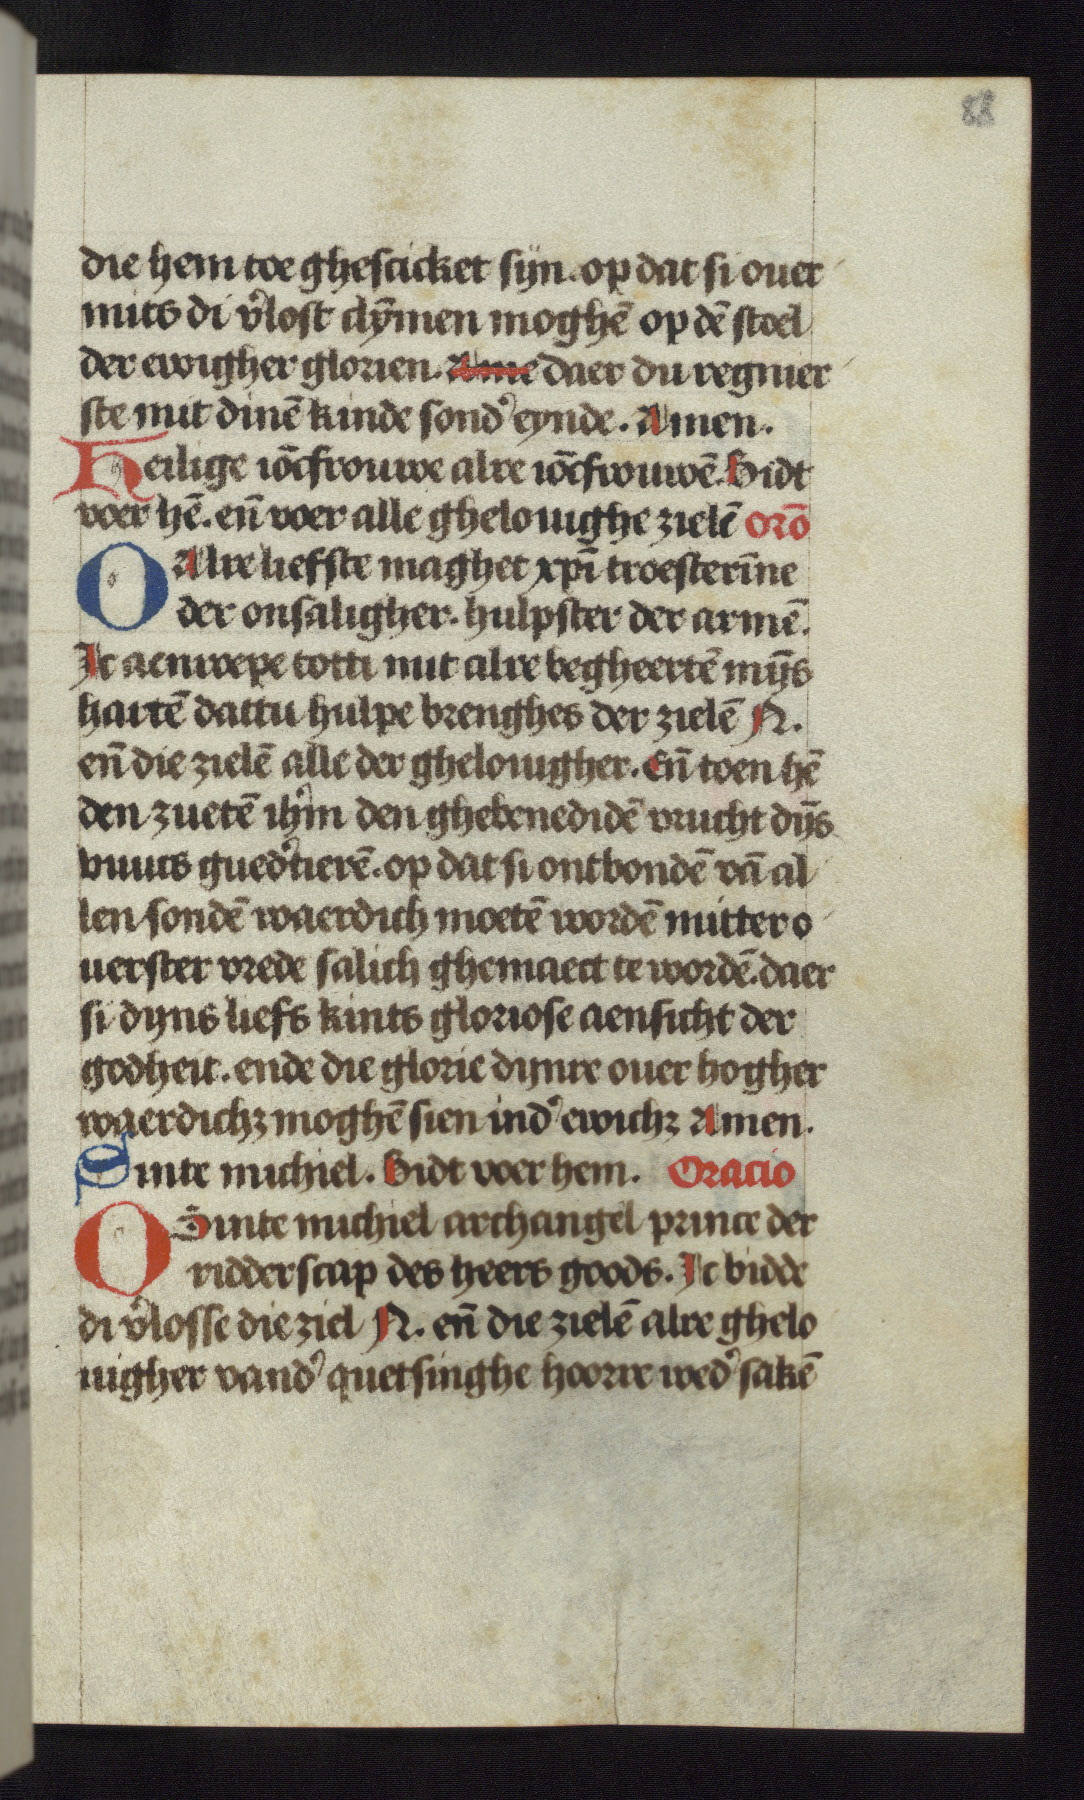 88
die hem toe ghescicket sijn. op dat si ouer
mits di v̓lost clȳmen moghē op dē stoel
der ewigher glorien. Ame daer du regnier
ste mit dinē kinde sond̓ eynde. Amen.
Heilige iōcfrouwe alre iōcfrouwē. Bidt
voer hē. en̄ voer alle ghelouighe zielē orō
O Alre liefste maghet xpī troesterīne
der onsaligher. hulpster der armē.
Ic aenroepe totti mit alre begheertē mȳs
hartē dattu hulpe brenghes der zielē N.
en̄ die zielē alle der ghelouigher. En̄ toen hē
den zuetē ih̓m den ghebenedidē vrucht dȳs
buucs gued̓tierē. op dat si ontbondē vā al
len sondē waerdich moetē wordē mitter o
uerster vrede salich ghemaect te wordē. daer
si dyns liefs kints gloriose aensicht der
godheit. ende die glorie dynre ouer hogher
waerdichz moghē sien ind̓ ewichz Amen.
Sinte michiel. Bidt voer hem. Oracio
O Sinte michiel archangel prince der
ridderscap des heers goods. Ic bidde
di v̓losse die ziel N. en̄ die zielē alre ghelo
uigher vand̓ quetsinghe hoorre wed̓sakē